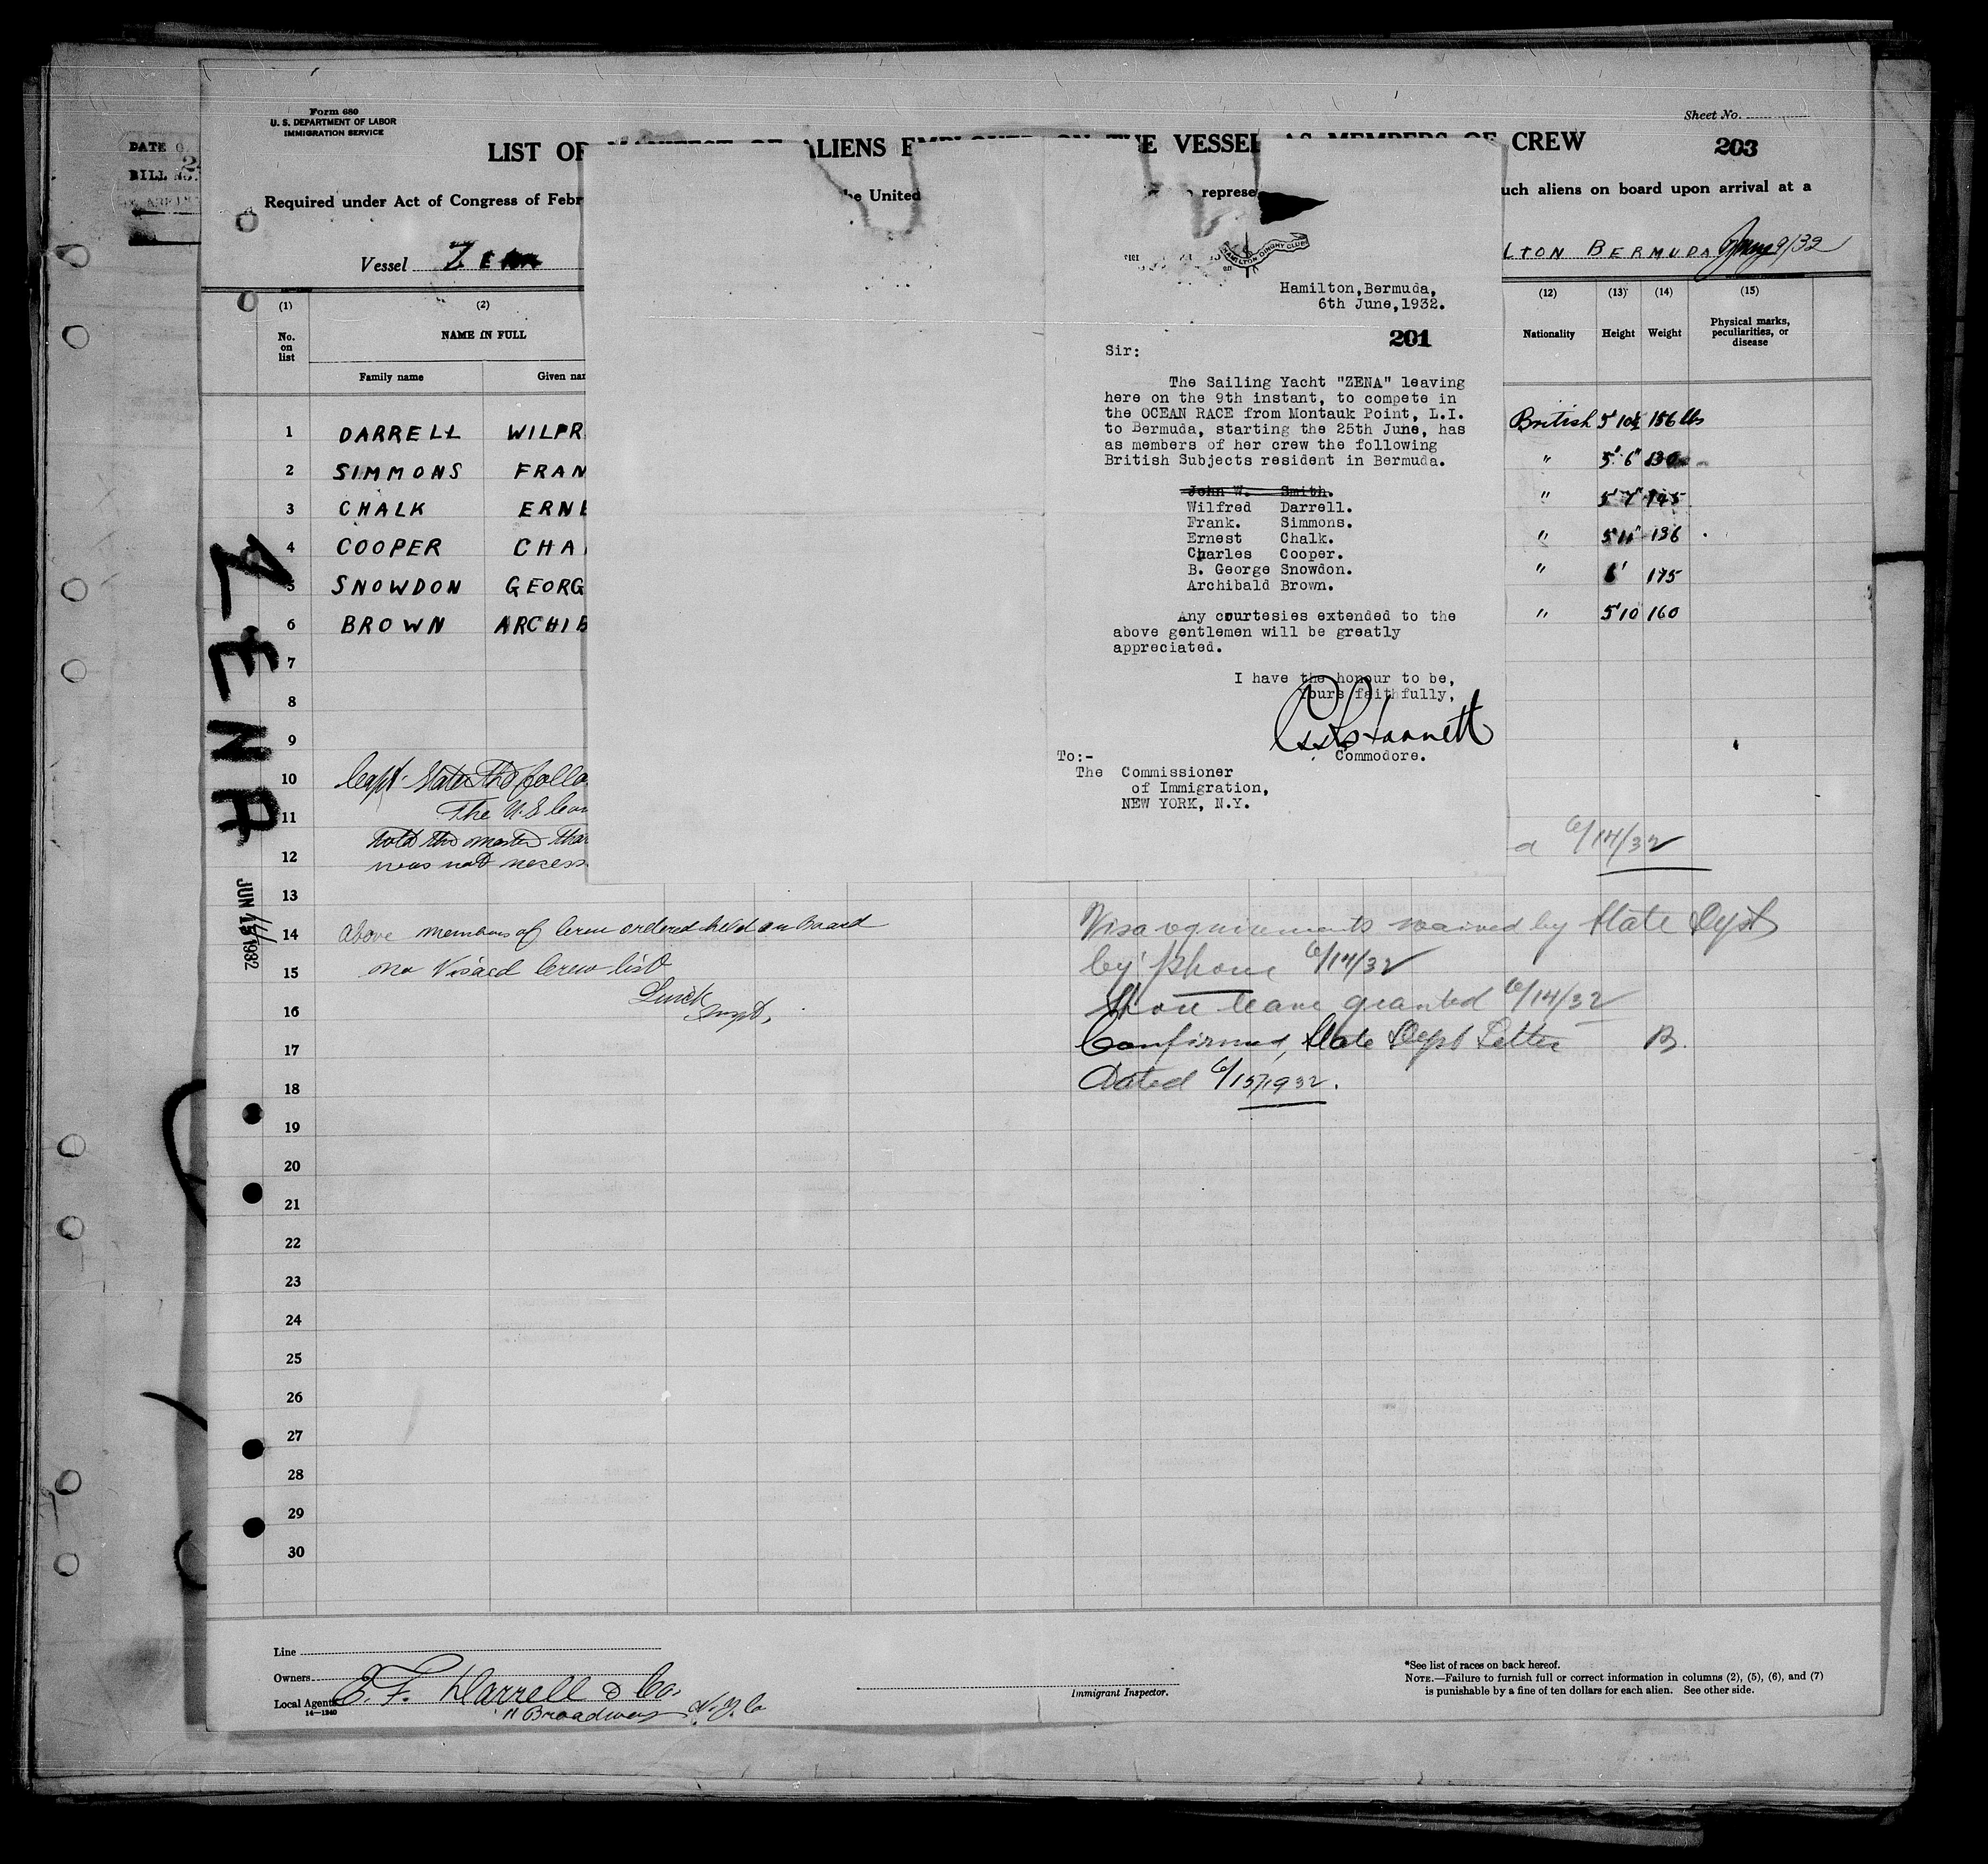 Form 680
U. S. DEPARTMENT OF LABOR
IMMIGRATION SERVICE
Sheet No.
203
DATE O
BILL NO.
LIST OR MANIFEST OF ALIENS EMPLOYED ON THE VESSEL AS MEMBERS OF CREW
Required under Act of Congress of Febr
he United
represe
uch aliens on board upon arrival at a
Vessel Zena
LTON BERMUDA June 9/32
(1) (2) (12) (13) (14) (15)
No. on list
NAME IN FULL
Family name
Given nam
Nationality
Height
Weight
Physical marks, peculiarities, or disease
1 DARRELL WILFR British 5' 10½ 156 lbs
2 SIMMONS FRAN " 5' 6" 130
3 CHALK ERNE " 5' 7" 145
4 COOPER CHA " 5' 11" 136
5 SNOWDON GEORG " 6' 175
6 BROWN ARCHIB " 5'10 160
7
8
9
10 Capt. States the follo
11 The U.S Con
told the master that
12 was not necess
a 6/14/32
13
14 above members of Crew ordered held on Board
15 no Visaed Crew list
16
Insp.
17
18
19
20
21
22
23
24
25
26
27
28
29
30
ZENA
JUN 1932
HAMILTON DINGHY CLUB
Hamilton,Bermuda,
6th June,1932.
201
Sir:
The Sailing Yacht "ZENA" leaving
here on the 9th instant, to compete in
the OCEAN RACE from Montauk Point, L.I.
to Bermuda, starting the 25th June, has
as members of her crew the following
British Subjects resident in Bermuda.
John W. Smith.
Wilfred Darrell.
Frank. Simmons.
Ernest Chalk.
Charles Cooper.
B. George Snowdon.
Archibald Brown.
Any courtesies extended to the
above gentlemen will be greatly
appreciated.
I have the honour to be,
Yours faithfully,
Commodore.
To:-
The Commissioner
of Immigration,
NEW YORK, N.Y.
Visa requirements waived by State Dept
by phone 6/14/32
Shore leave granted 6/14/32
Confirmed, State Dept Letter B.
Dated 6/15/1932.
Line
Owners
Local Agents E. F. Darrell & Co.
14—1240
11 Broadway N.Y.C
Immigrant Inspector.
*See list of races on back hereof.
NOTE.—Failure to furnish full or correct information in columns (2), (5), (6), and (7)
is punishable by a fine of ten dollars for each alien. See other side.